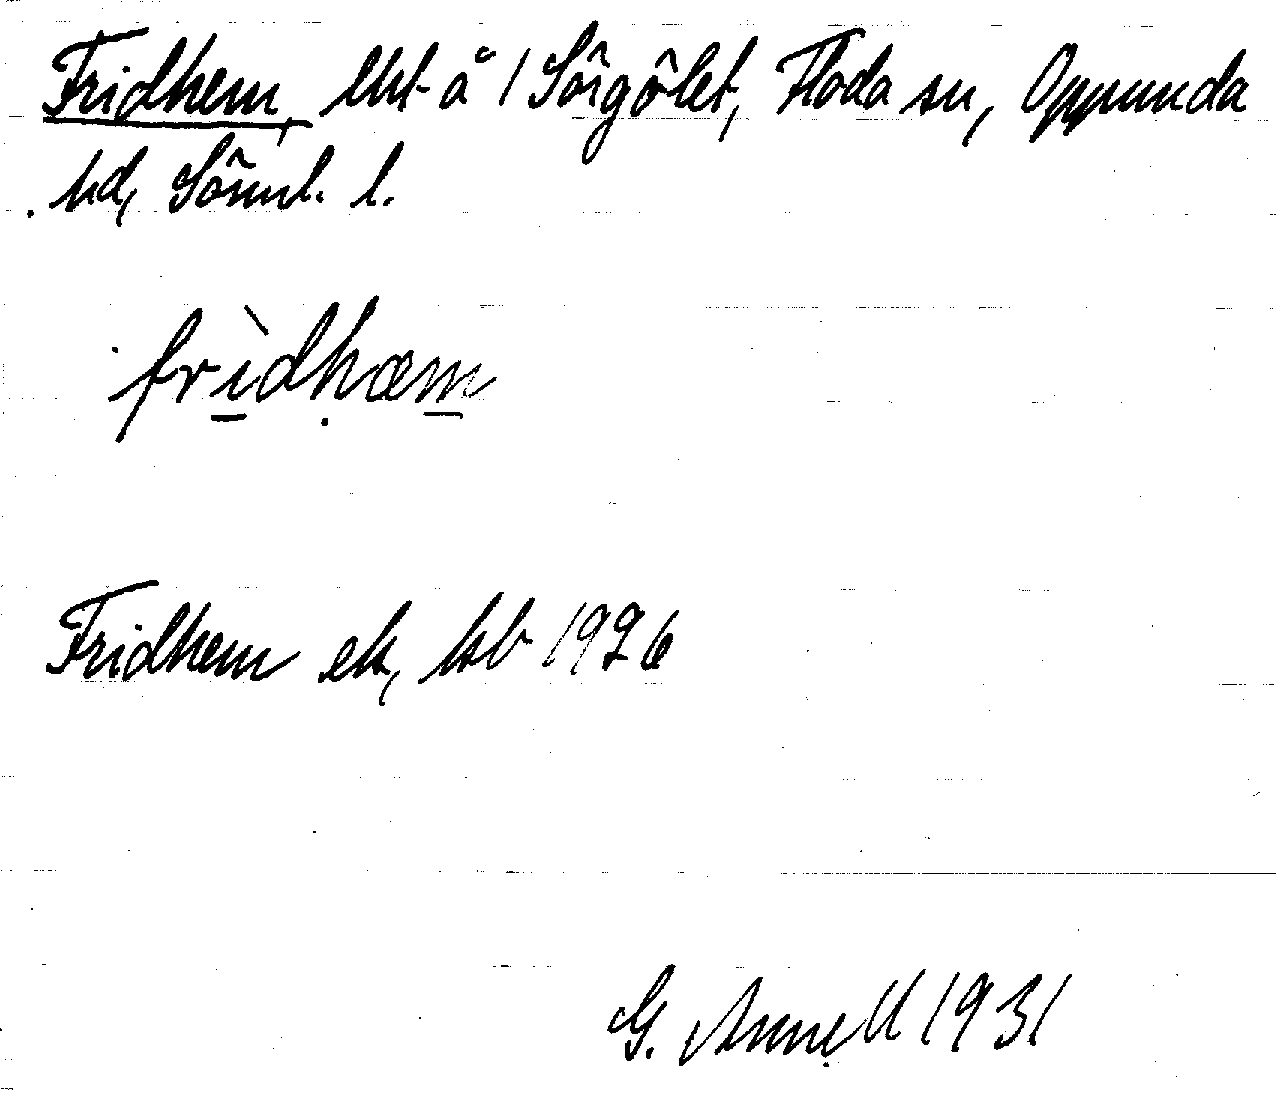 Fridhem, lht å 1 Sörgölet, Floda sn, Oppunda
hd, Södml. l.
frìdhæm
Fridhem eh, hsb 1926
G. Annell 1931